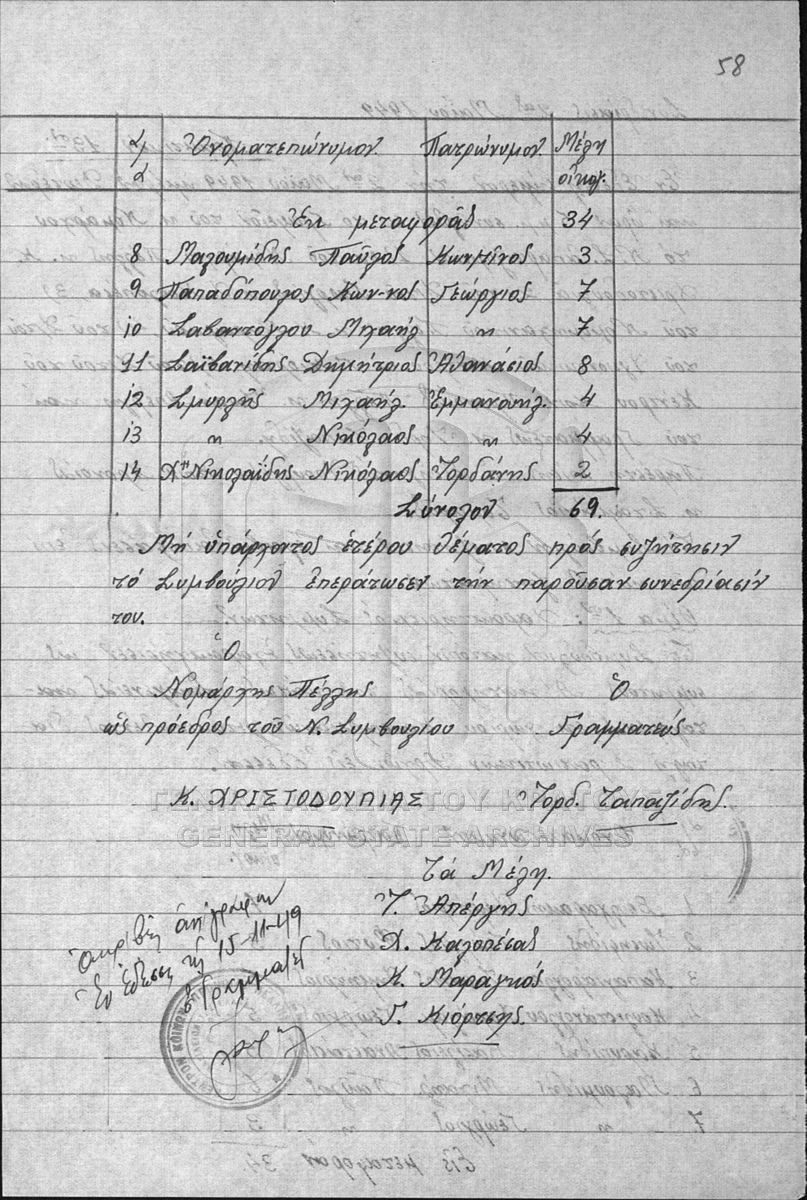 58
α/α Ὀνοματεπώνυμον Πατρώνυμον Μέλη οἰκογ.
Ἐκ μεταφορᾶς 34
8 Μαλουμίδης Παῦλος Κων/τῖνος 3
9 Παπαδόπουλος Κων-νος Γεώργιος 7
10 Σαβαντόγλου Μιχαήλ " 7
11 Σαϊβανίδης Δημήτριος Ἀθανάσιος 8
12 Σμυρλῆς Μιχαήλ Ἐμμανουήλ 4
13 " Νικόλαος " 4
14 Χ" Νικολαΐδης Νικόλαος Ἰορδάνης 2
Σύνολον 69.
Μή ὑπάρχοντος ἑτέρου θέματος πρός συζήτησιν
τό Συμβούλιον ἐπεράτωσεν τήν παροῦσαν συνεδρίασίν
του.
Ὁ
Νομάρχης Πέλλης Ὁ
ὡς πρόεδρος τοῦ Ν. Συμβουλίου Γραμματεύς
Κ. ΧΡΙΣΤΟΔΟΥΠΙΑΣ Ἰορδ. Ταπατζίδης.
Τά Μέλη.
Ἰ. Ἀπέργης
Χ. Καλοπέσας
Κ. Μαραγκός
Γ. Κιόρτσης.
Ἀκριβές ἀντίγραφον
Ἐν Ἐδέσσῃ τῇ 15-11-49
ὁ Γραμματεύς